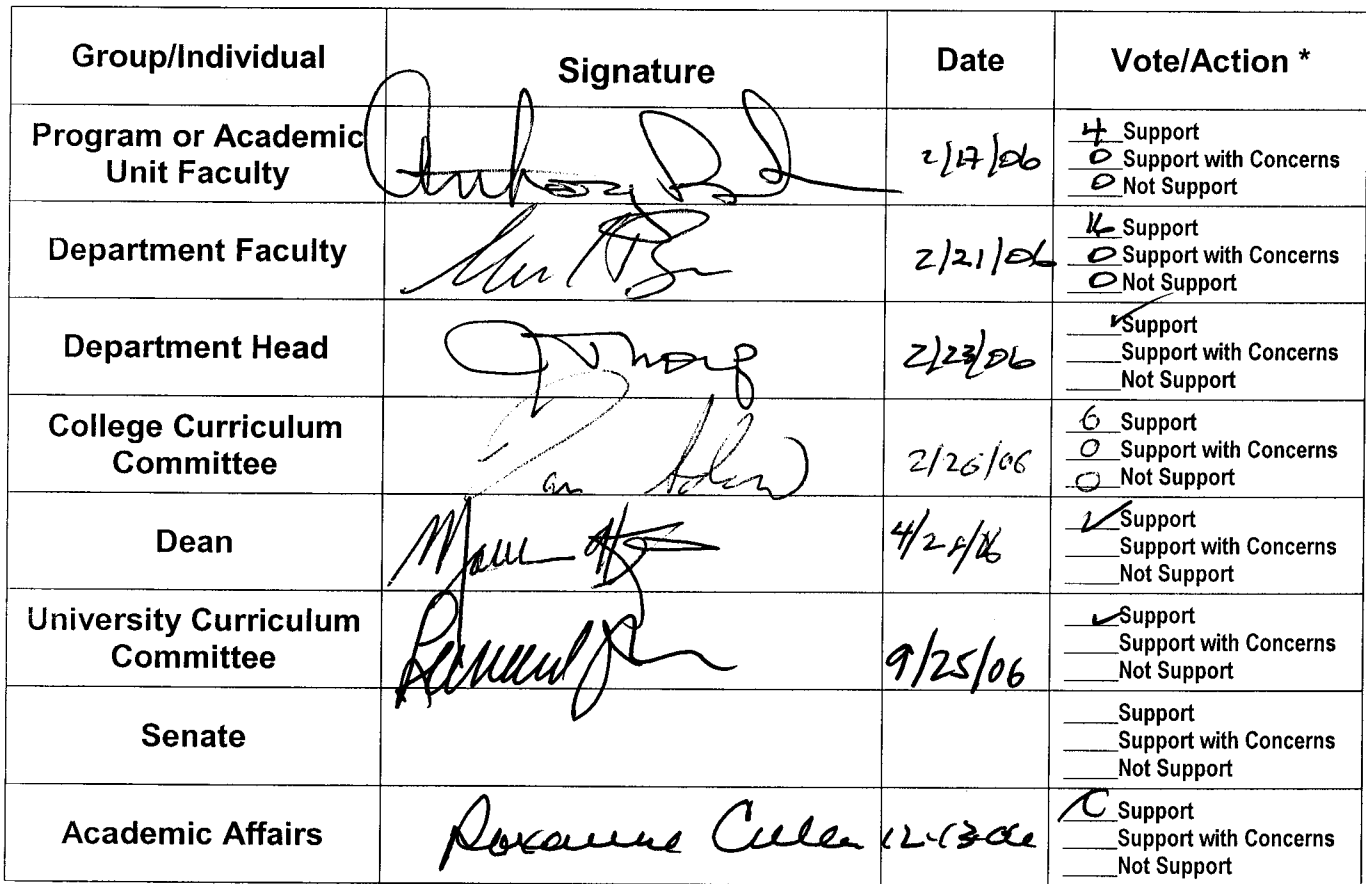 Group/Individual Signature Date Vote/Action *
Program or Academic Unit Faculty 2/17/06
4 Support
0 Support with Concerns
0 Not Support
Department Faculty 2/21/06
Support
0 Support with Concerns
0 Not Support
Department Head 2/23/06
✓ Support
Support with Concerns
Not Support
College Curriculum Committee 2/26/06
6 Support
0 Support with Concerns
0 Not Support
Dean
✓ Support
Support with Concerns
Not Support
University Curriculum Committee 9/25/06
✓ Support
Support with Concerns
Not Support
Senate
Support
Support with Concerns
Not Support
Academic Affairs Roxanne Cullen 12-13-06
Support
Support with Concerns
Not Support